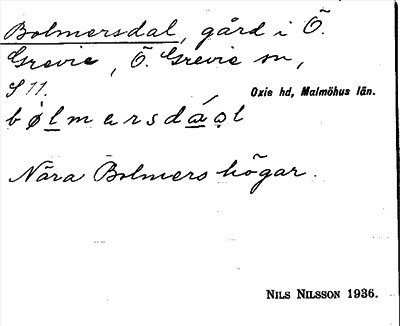 Bolmersdal, gård i Ö.
Grevie, Ö. Grevie sn,
S 11. Oxie hd, Malmöhus län.
bølmersdáọl
Nära Bolmers högar.
NILS NILSSON 1936.